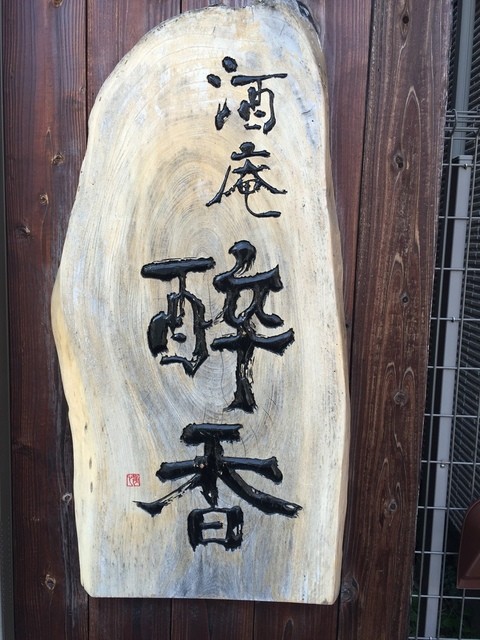 酒庵
酔香